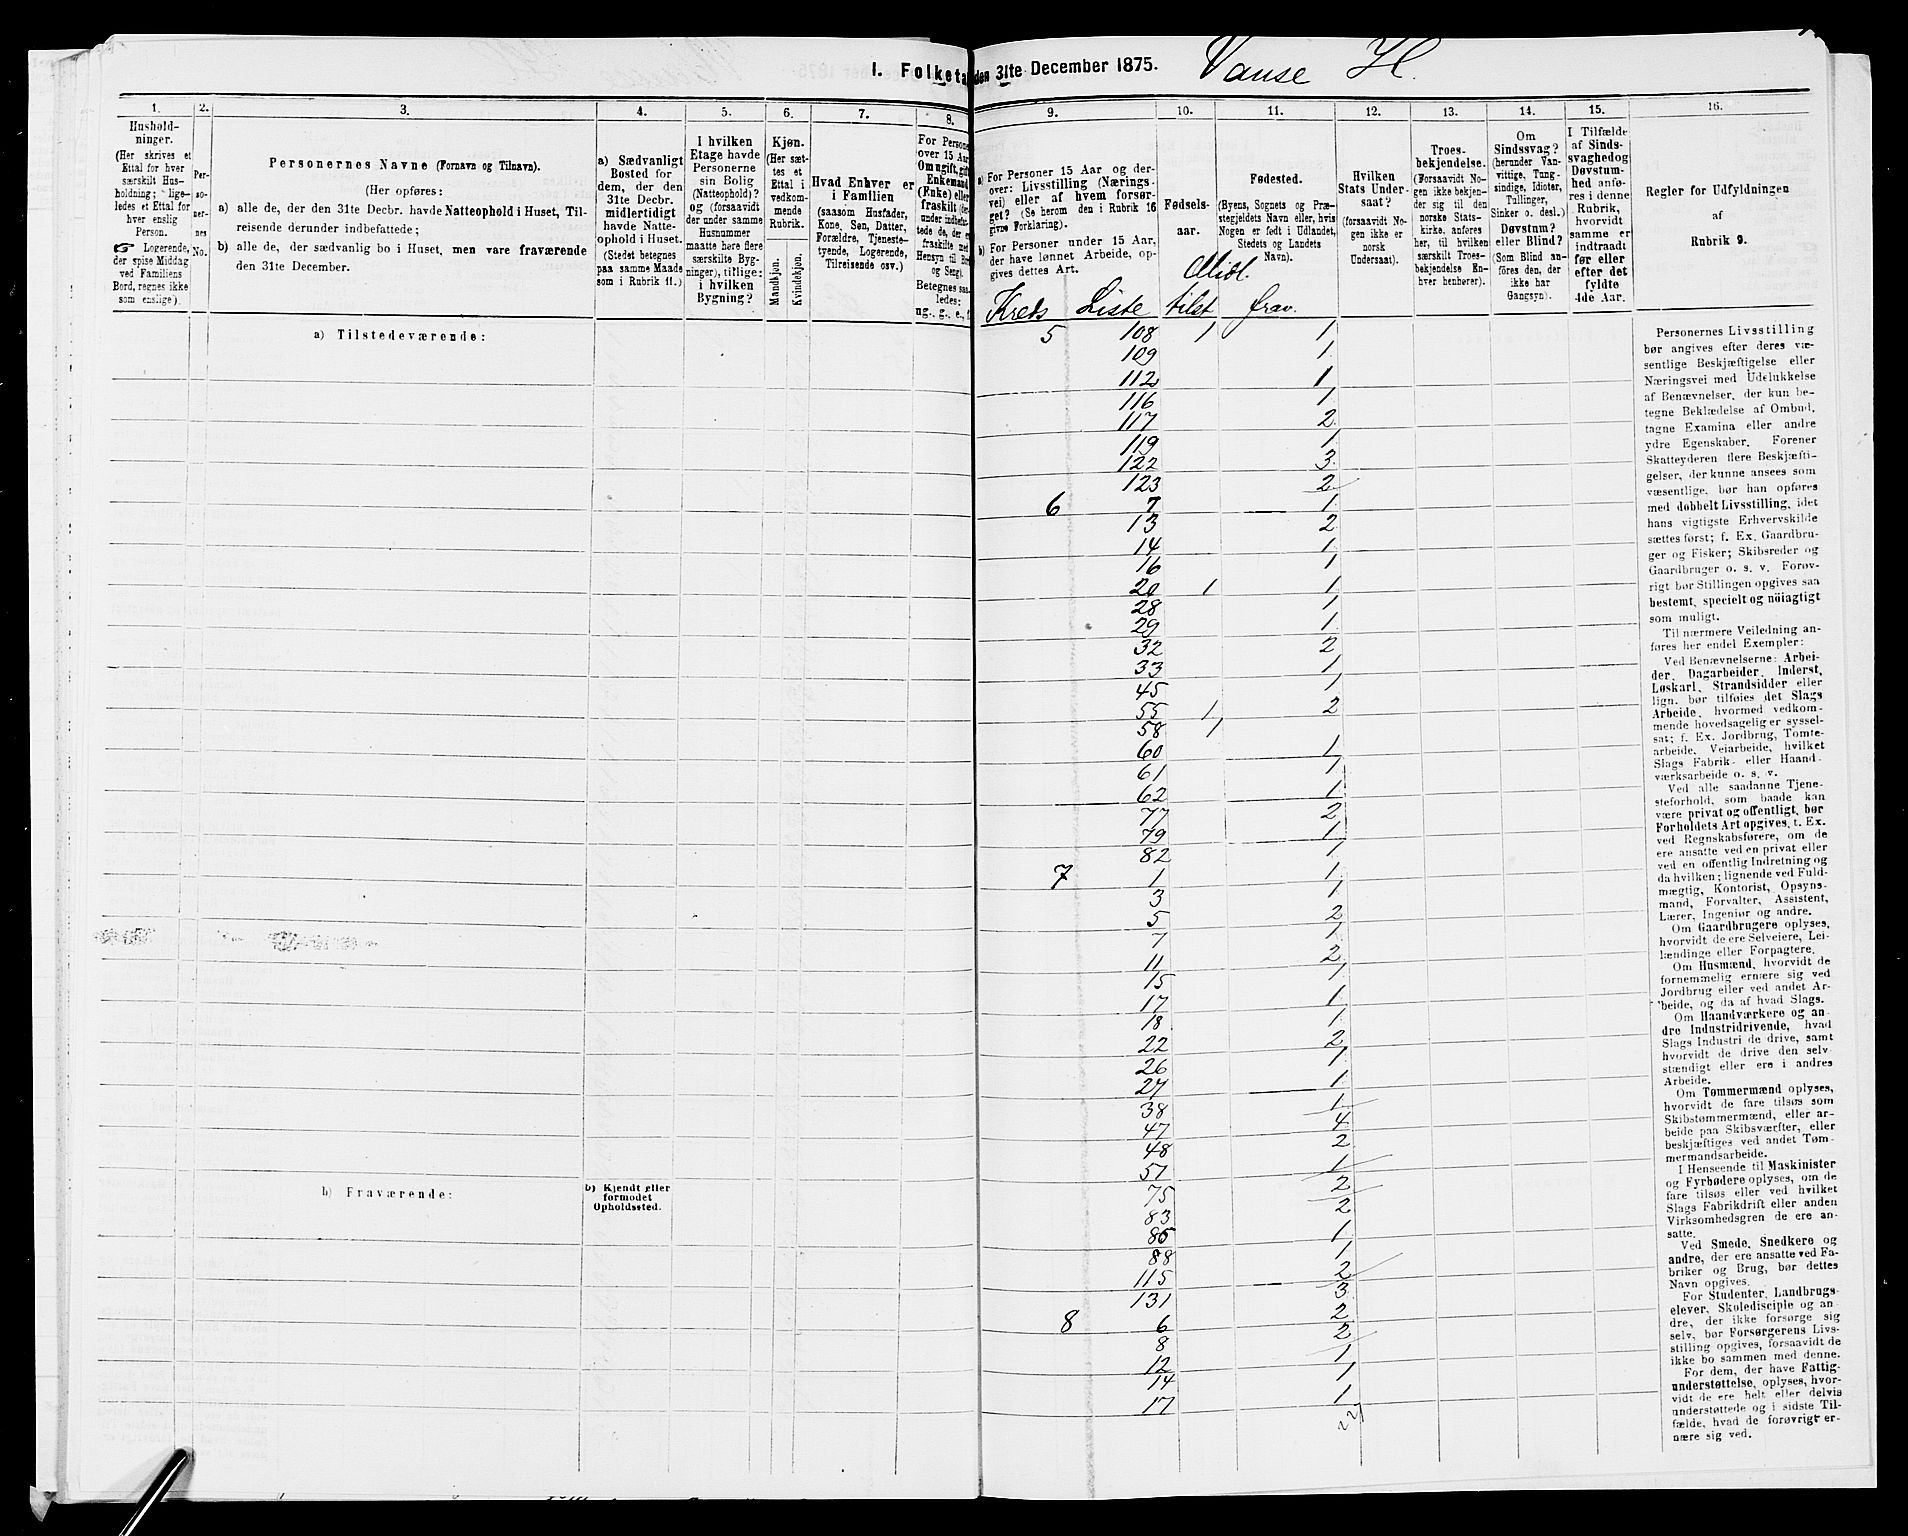 I. Folketal den 31te December 1875. Vanse H.
1.
Hushold-
ninger.
(Her skrives et
Ettal for hver
særskilt Hus-
holdning; lige-
ledes et Ettal
for hver
enslig
Person.
☞ Logerende,
der spise Middag
ved Familiens
Bord, regnes ikke
som enslige).
2.
Per-
so-
ner-
nes
No.
3.
Personernes Navne (Fornavn og Tilnavn).
(Her opføres:
a) alle de, der den 31te Decbr. havde Natteophold i Huset, Til-
reisende derunder indbefattede;
b) alle de, der sædvanlig bo i Huset, men vare fraværende
den 31te December.
4.
a) Sædvanligt
Bosted for
dem, der den
31te Decbr.
midlertidigt
havde Natte-
ophold i Huset.
(Stedet betegnes
paa samme Maade
som i Rubrik 11.)
5.
I hvilken
Etage havde
Personerne
sin Bolig
(Natteophold)?
og (forsaavidt
der under samme
Husnummer
maatte høre flere
særskilte Byg-
ninger), tillige:
i hvilken
Bygning?
6.
Kjøn.
(Her sæt-
tes et
Ettal i
vedkom-
mende
Rubrik.
Mandkjøn.
Kvindekjøn.
7.
Hvad Enhver er
i Familien
(saasom Husfader,
Kone, Søn, Datter,
Forældre, Tjeneste-
tyende, Logerende,
Tilreisende osv.)
8.
For Persone
over 15 Aar
Omugift, gift
Enkemand
(Enke) eller
fraskilt
under indbefat-
tede de, der e
fraskilte med
Hensyn til Bo
og Seng).
Betegnes saa-
ledes:
ug., g., e., f.
9.
a) For Personer 15 Aar og der-
over: Livsstilling (Nærings-
vei) eller af hvem forsør-
get? (Se herom den i Rubrik 16
givne Forklaring).
b) For Personer under 15 Aar,
der have lønnet Arbeide, op-
gives dettes Art.
Kreds Liste
10.
Fødsels-
aar.
Midl.
tilst
11.
Fødested.
(Byens, Sognets og Præ-
stegjeldets Navn eller, hvis
Nogen er født i Udlandet,
Stedets og Landets
Navn).
frav.
12.
Hvilken
Stats Under-
saat?
(forsaavidt No-
gen ikke er
norsk
Undersaat).
13.
Troes-
bekjendelse.
(Forsaavidt No-
gen ikke bekjen-
der sig til den
norske Stats-
kirke, anføres
her, til hvilken
særskilt Troes-
bekjendelse En-
hver henhører).
14.
Om
Sindssvag?
(herunder Van-
vittige, Tung-
sindige, Idioter,
Tullinger,
Sinker o. desl.)
Døvstum?
eller Blind?
(Som Blind an-
føres den, der
ikke har
Gangsyn).
15.
I Tilfælde
af Sinds-
svaghedog
Døvstum-
hed anfø-
res i denne
Rubrik,
hvorvidt
samme er
indtraadt
før eller
efter det
fyldte
4de Aar.
16.
Regler for Udfyldningen
af
Rubrik 9.
a) Tilstedeværende:
5 108 1 1
109 1
112 1
116 1
117 2
119 1
122 3
123 2
6 7 1
13 2
14 1
16 1
20 1 1
28 1
29 1
32 2
33 1
45 1
55 1 2
58 1
60 1
61 1
62 1
77 2
79 1
82 1
7 1 1
3 1
5 2
7 1
11 2
15 1
17 1
18 1
22 2
26 1
27 1
38 1
47 4
48 2
57 1
75 2
83 2
1
88 1
115 2
131 3
8 6 2
8 2
12 1
14 1
17 1
b) Fraværende:
b) Kjendt eller
formodet
Opholdssted.
Personernes Livsstilling
bør angives efter deres væ-
sentlige Beskjæftigelse eller
Næringsvei med Udelukkelse
af Benævnelser, der kun be-
tegne Beklædelse af Ombud,
tagne Examina eller andre
ydre Egenskaber. Forener
Skatteyderen flere Beskjæfti-
gelser, der kunne ansees som
væsentlige, bør han opføres
med dobbelt Livsstilling, idet
hans vigtigste Erhvervskilde
sættes først; f. Ex. Gaardbru-
ger og Fisker; Skibsreder og
Gaardbruger o. s. v. Forøv-
rigt bør Stillingen opgives saa
bestemt, specielt og nöiagtigt
som muligt.
Til nærmere Veiledning an-
føres her endel Exempler:
Ved Benævnelserne: Arbei-
der, Dagarbeider, Inderst,
Løskarl, Strandsidder eller
lign. bør tilføies det Slags
Arbeide, hvormed vedkom-
mende hovedsagelig er syssel-
sat; f. Ex. Jordbrug, Tomte-
arbeide, Veiarbeide, hvilket
Slags Fabrik- eller Haand-
værksarbeide o. s. v.
Ved alle saadanne Tjene-
steforhold, som baade kan
være privat og offentligt, bør
Forholdets Art opgives, t. Ex.
ved Regnskabsførere, om de
ere ansatte ved en privat eller
ved en offentlig Indretning og
da hvilken; lignende ved Fuld-
mægtig, Kontorist, Opsyns-
mand, Forvalter, Assistent,
Lærer, Ingeniør og andre.
Om Gaardbrugere oplyses,
hvorvidt de ere Selveiere, Lei-
lændinge eller Forpagtere.
Om Husmænd, hvorvidt de
fornemmelig ernære sig ved
Jordbrug eller ved andet Ar-
beide, og da af hvad Slags.
Om Haandværkere og an-
dre Industridrivende, hvad
Slags Industri de drive, samt
hvorvidt de drive den selv-
stændigt eller ere i andres
Arbeide.
Om Tømmermænd oplyses,
hvorvidt de fare tilsøs som
Skibstømmermænd, eller ar-
beide paa Skibsværfter, eller
beskjæftiges ved andet Tøm-
mermandsarbeide.
I Henseende til Maskinister
og Fyrbødere oplyses, om de
fare tilsøs eller ved hvilket
Slags Fabrikdrift eller anden
Virksomhedsgren de ere an-
satte.
Ved Smede, Snedkere og
andre, der ere ansatte ved Fa-
briker og Brug, bør dettes
Navn opgives.
For Studenter, Landbrugs-
elever, Skoledisciple og an-
dre, der ikke forsørge sig
selv, bør Forsørgerens Livs-
stilling opgives, forsaavidt de
ikke bo sammen med denne.
For dem, der have Fattig-
understøttelse, oplyses, hvor-
vidt de ere helt eller delvis
understøttede og i sidste Til-
fælde, hvad de forøvrigt er-
nære sig ved.